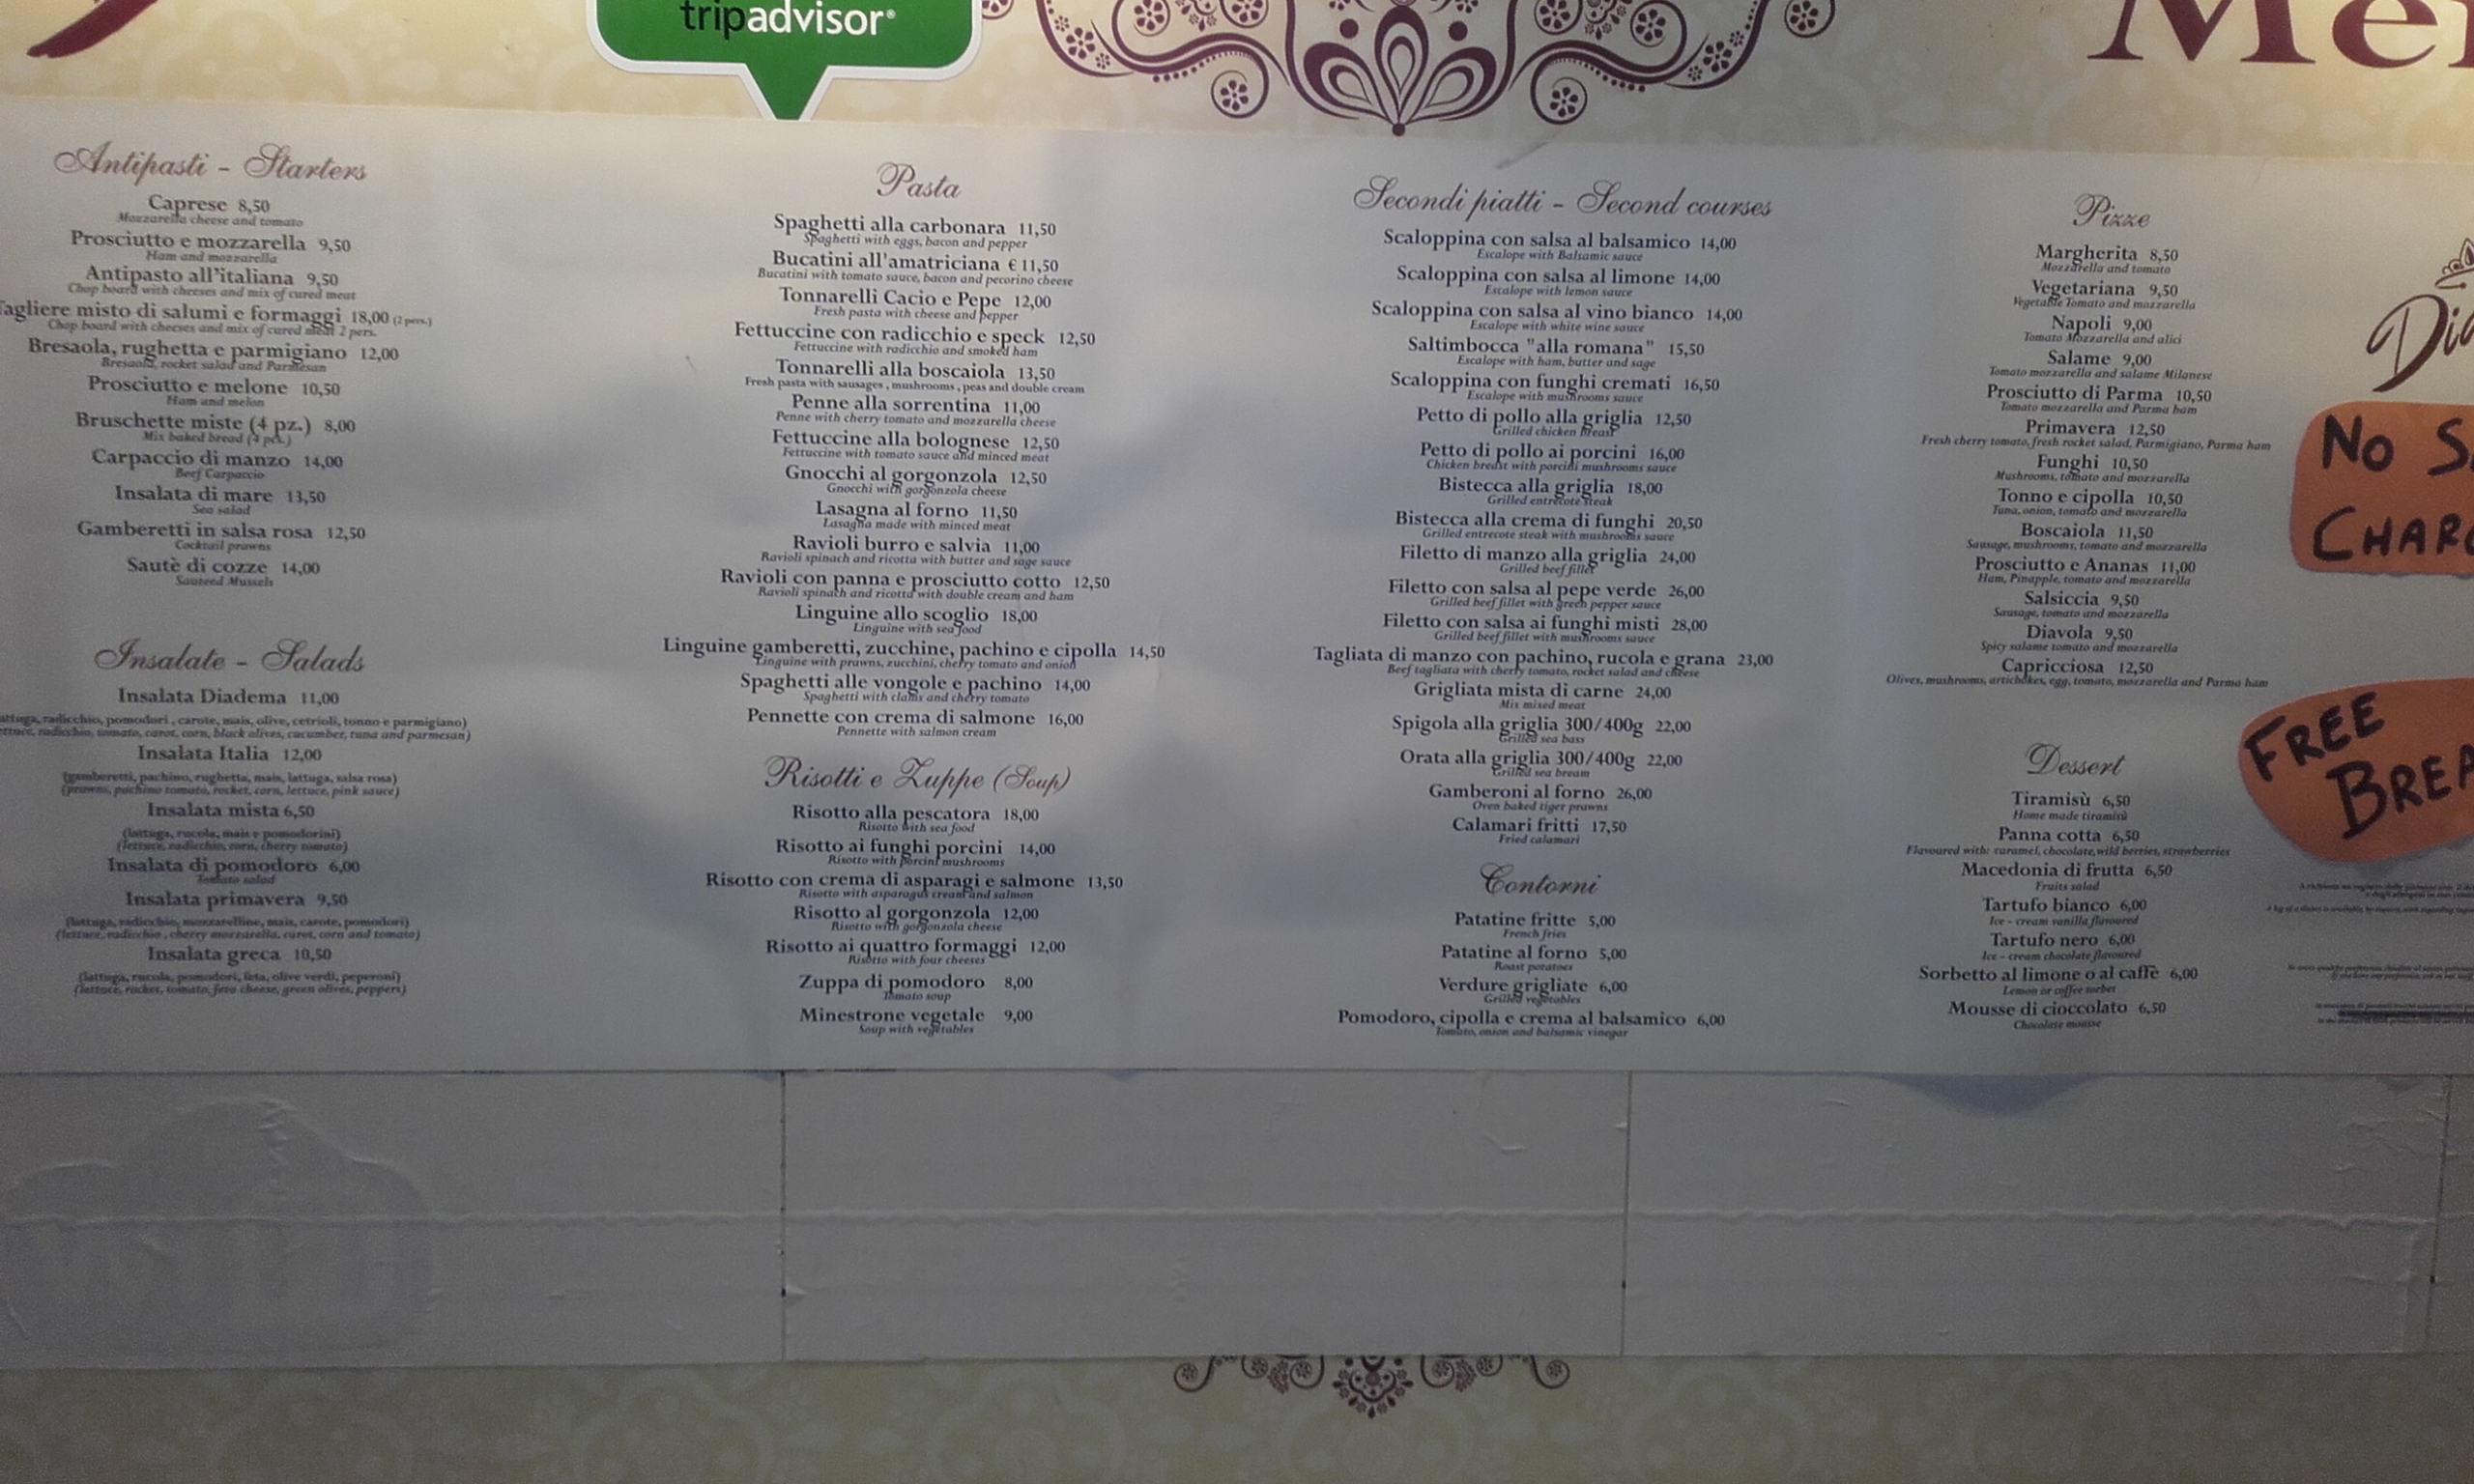 tripadvisor®
Antipasti - Starters
Caprese 8,50
Mozzarella cheese and tomato
Prosciutto e mozzarella 9,50
Ham and mozzarella
Antipasto all'italiana 9,50
Chop board with cheeses and mix of cured meat
Tagliere misto di salumi e formaggi 18,00 (2 pers.)
Chop board with cheeses and mix of cured meat 2 pers.
Bresaola, rughetta e parmigiano 12,00
Bresaola, rocket salad and Parmesan
Prosciutto e melone 10,50
Ham and melon
Bruschette miste (4 pz.) 8,00
Mix baked bread (4 pcs.)
Carpaccio di manzo 14,00
Beef Carpaccio
Insalata di mare 13,50
Sea salad
Gamberetti in salsa rosa 12,50
Cocktail prawns
Sautè di cozze 14,00
Sauteed Mussels
Insalate - Salads
Insalata Diadema 11,00
radicchio, pomodori, carote, mais, olive, cetrioli, tonno e parmigiano)
radicchio, tomato, carot, corn, black olives, cucumber, tuna and parmesan)
Insalata Italia 12,00
(gamberetti, pachino, rughetta, mais, lattuga, salsa rosa)
(prawns, pachino tomato, rocket, corn, lettuce, pink sauce)
Insalata mista 6,50
(lattuga, rucola, mais e pomodorini)
(lettuce, radicchio, corn, cherry tomato)
Insalata di pomodoro 6,00
Tomato salad
Insalata primavera 9,50
(lattuga, radicchio, mozzarelline, mais, carote, pomodori)
(lettuce, radicchio, cherry mozzarella, carot, corn and tomato)
Insalata greca 10,50
(lattuga, rucola, pomodori, feta, olive verdi, peperoni)
(lettuce, rocket, tomato, feta cheese, green olives, peppers)
Pasta
Spaghetti alla carbonara 11,50
Spaghetti with eggs, bacon and pepper
Bucatini all'amatriciana € 11,50
Bucatini with tomato sauce, bacon and pecorino cheese
Tonnarelli Cacio e Pepe 12,00
Fresh pasta with cheese and pepper
Fettuccine con radicchio e speck 12,50
Fettuccine with radicchio and smoked ham
Tonnarelli alla boscaiola 13,50
Fresh pasta with sausages, mushrooms, peas and double cream
Penne alla sorrentina 11,00
Penne with cherry tomato and mozzarella cheese
Fettuccine alla bolognese 12,50
Fettuccine with tomato sauce and minced meat
Gnocchi al gorgonzola 12,50
Gnocchi with gorgonzola cheese
Lasagna al forno 11,50
Lasagna made with minced meat
Ravioli burro e salvia 11,00
Ravioli spinach and ricotta with butter and sage sauce
Ravioli con panna e prosciutto cotto 12,50
Ravioli spinach and ricotta with double cream and ham
Linguine allo scoglio 18,00
Linguine with sea food
Linguine gamberetti, zucchine, pachino e cipolla 14,50
Linguine with prawns, zucchini, cherry tomato and onion
Spaghetti alle vongole e pachino 14,00
Spaghetti with clams and cherry tomato
Pennette con crema di salmone 16,00
Pennette with salmon cream
Risotti e Zuppe (Soup)
Risotto alla pescatora 18,00
Risotto with sea food
Risotto ai funghi porcini 14,00
Risotto with porcini mushrooms
Risotto con crema di asparagi e salmone 13,50
Risotto with asparagus cream and salmon
Risotto al gorgonzola 12,00
Risotto with gorgonzola cheese
Risotto ai quattro formaggi 12,00
Risotto with four cheeses
Zuppa di pomodoro 8,00
Tomato soup
Minestrone vegetale 9,00
Soup with vegetables
Secondi piatti - Second courses
Scaloppina con salsa al balsamico 14,00
Escalope with Balsamic sauce
Scaloppina con salsa al limone 14,00
Escalope with lemon sauce
Scaloppina con salsa al vino bianco 14,00
Escalope with white wine sauce
Saltimbocca "alla romana" 15,50
Escalope with ham, butter and sage
Scaloppina con funghi cremati 16,50
Escalope with mushrooms sauce
Petto di pollo alla griglia 12,50
Grilled chicken breast
Petto di pollo ai porcini 16,00
Chicken breast with porcini mushrooms sauce
Bistecca alla griglia 18,00
Grilled entrecote steak
Bistecca alla crema di funghi 20,50
Grilled entrecote steak with mushrooms sauce
Filetto di manzo alla griglia 24,00
Grilled beef fillet
Filetto con salsa al pepe verde 26,00
Grilled beef fillet with green pepper sauce
Filetto con salsa ai funghi misti 28,00
Grilled beef fillet with mushrooms sauce
Tagliata di manzo con pachino, rucola e grana 23,00
Beef tagliata with cherry tomato, rocket salad and cheese
Grigliata mista di carne 24,00
Mix mixed meat
Spigola alla griglia 300/400g 22,00
Grilled sea bass
Orata alla griglia 300/400g 22,00
Grilled sea bream
Gamberoni al forno 26,00
Oven baked tiger prawns
Calamari fritti 17,50
Fried calamari
Contorni
Patatine fritte 5,00
French fries
Patatine al forno 5,00
Roast potatoes
Verdure grigliate 6,00
Grilled vegetables
Pomodoro, cipolla e crema al balsamico 6,00
Tomato, onion and balsamic vinegar
Pizze
Margherita 8,50
Mozzarella and tomato
Vegetariana 9,50
Vegetable Tomato and mozzarella
Napoli 9,00
Tomato Mozzarella and alici
Salame 9,00
Tomato mozzarella and salame Milanese
Prosciutto di Parma 10,50
Tomato mozzarella and Parma ham
Primavera 12,50
Fresh cherry tomato, fresh rocket salad, Parmigiano, Parma ham
Funghi 10,50
Mushrooms, tomato and mozzarella
Tonno e cipolla 10,50
Tuna, onion, tomato and mozzarella
Boscaiola 11,50
Sausage, mushrooms, tomato and mozzarella
Prosciutto e Ananas 11,00
Ham, Pinapple, tomato and mozzarella
Salsiccia 9,50
Sausage, tomato and mozzarella
Diavola 9,50
Spicy salame tomato and mozzarella
Capricciosa 12,50
Olives, mushrooms, artichokes, egg, tomato, mozzarella and Parma ham
Dessert
Tiramisù 6,50
Home made tiramisù
Panna cotta 6,50
Flavoured with: caramel, chocolate, wild berries, strawberries
Macedonia di frutta 6,50
Fruits salad
Tartufo bianco 6,00
Ice - cream vanilla flavoured
Tartufo nero 6,00
Ice - cream chocolate flavoured
Sorbetto al limone o al caffè 6,00
Lemon or coffee sorbet
Mousse di cioccolato 6,50
Chocolate mousse
Me
Dia
No S
CHAR
FREE
BREA